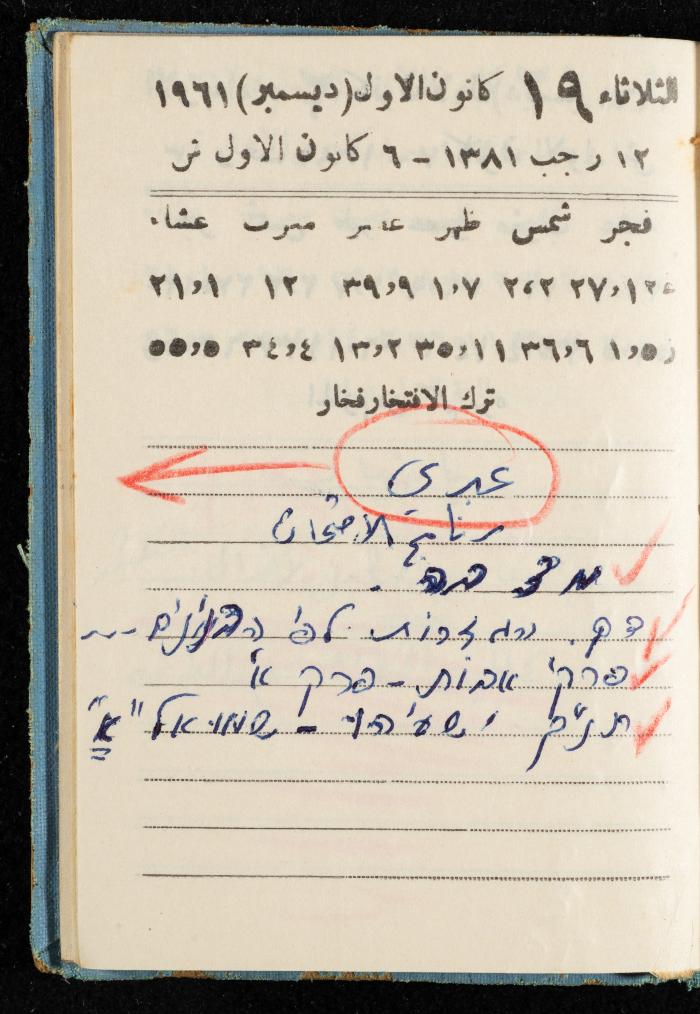 الثلاثاء ١٩ كانون الاول (ديسمبر) ١٩٦١
١٢ رجب ١٣٨١ - ٦ كانون الاول ش
فجر شمس ظهر عصر مغرب عشاء
٢٧,١٢ ٢,٢ ١,٧ ٣٩,٩ ١٢ ٢١,١
١,٥ ٣٦,٦ ٣٥,١١ ١٣,٢ ٣٤,٤ ٥٥,٥
ترك الافتخار فخار
عبري
برنامج الامتحان
מצבה.
דק. והגזרות לפי הבנינים
פרקי אבות - פרק א'
תנ״ך ישעיהו - שמואל "א"